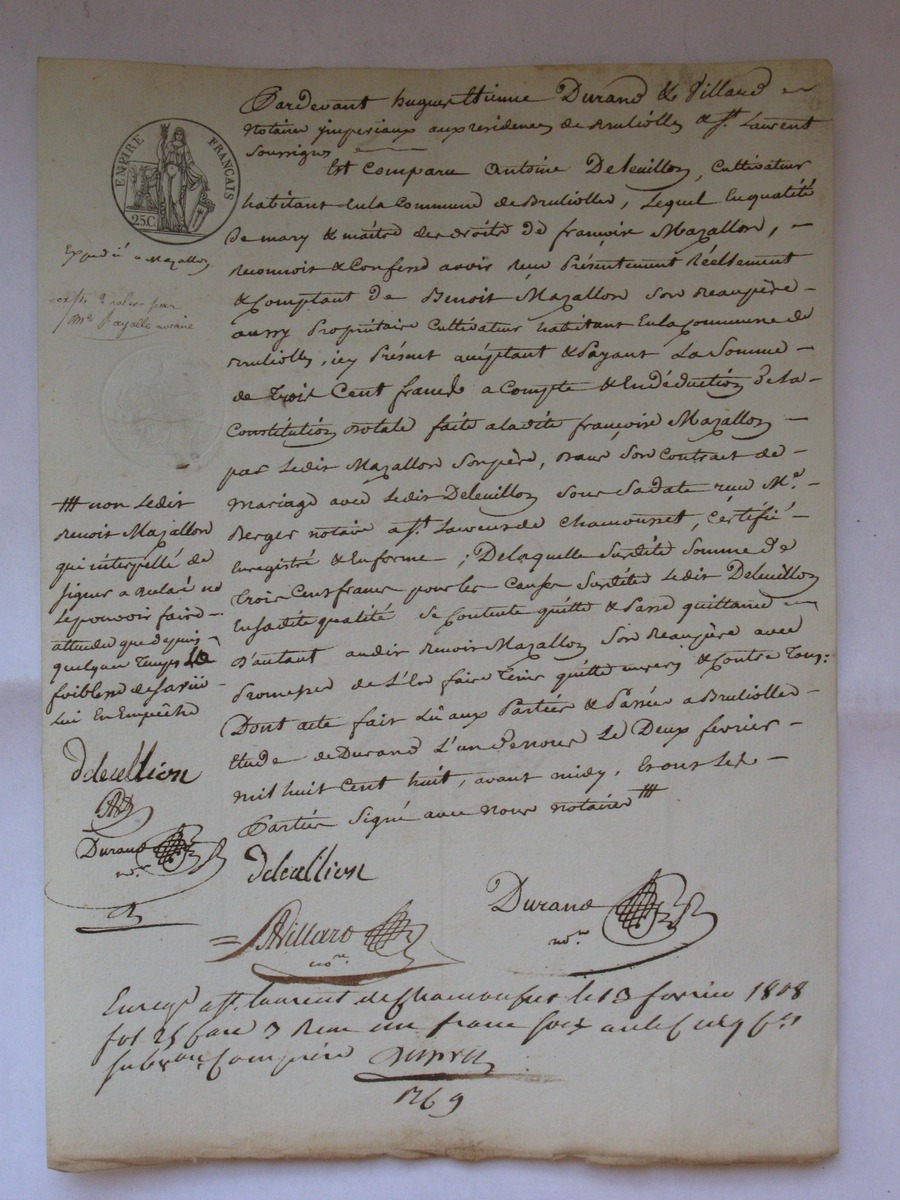 Pardevant hugues Etienne Durand & Villard
Notaires imperiaux aux residences de Brullioles & St. Laurent
Soussignés
EMPIRE FRANÇAIS
25C
Est comparu Antoine Deleullion, Cultivateur
habitant en la Commune de Brullioles, Lequel En qualité
De mary & maitre des droits de françoise Mazallon,
reconnoit & Confesse avoir reçu Présentement Réellement
& Comptant de Benoit Mazallon Son Beaupère
aussy Propriétaire Cultivateur habitant En la Commune de
Brullioles, icy Présent acceptant & Payant La Somme
de Trois Cent francs a Compte & En Déduction De la
Constitution Dotale faite a ladite françoise Mazallon
par Ledit Mazallon Son père, Dans Son Contrat de
mariage avec Ledit Deleullion Sous Sa date reçu Me.
Berger notaire a St. Laurent de Chamousset, Certifié
Enregistré & En forme ; De laquelle Susdite Somme De
trois Cent francs pour les Causes Susdites Ledit Deleullion
En sadite qualité Se Contente quitte & Passe quittance
D'autant audit Benoit Mazallon Son Beaupère avec
Promesse de L'En faire Tenir quitte envers & Contre Tous:
Dont acte fait Lû aux Parties & Passé a Brullioles
Etude de Durand L'un De nous Le Deux février
mil huit Cent huit, avant midy, Et ont Les
Parties Signé avec Nous notaires ###
Expedié a Mazallon
### non Ledit
Benoit Mazallon
qui interpellé de
Signer a declaré ne
Le pouvoir faire
attendu que depuis
quelque Temps La
foiblesse de Sa vüe
Lui En Empêche
deleullion
Durand
nore
deleullion
AVillard
nore
Durand
nore
Enregé a St. laurent de Chamousset le 13 fevrier 1808
fol 25 Case 3 Reçu un franc
Subvon Comprise
1769